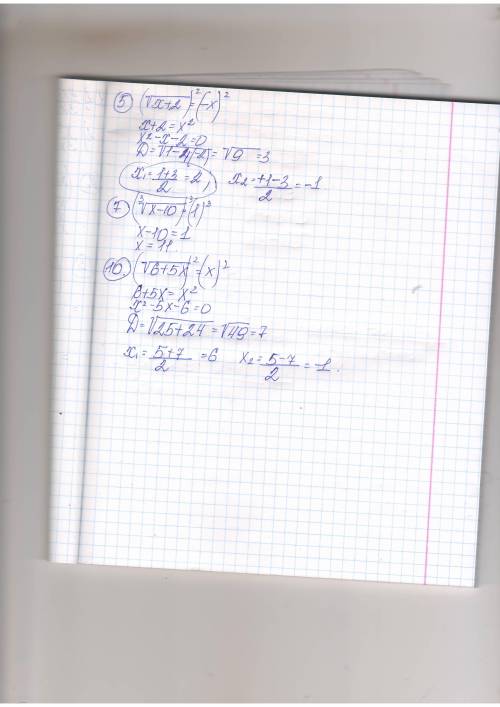 5 (√x+2)²=(-x)²
x+2=x²
x²-x-2=0
D=√1-4(-2)=√9=3
x₁=1+3/2=2; x₂=+1-3/2=-1
7 (³√x-10)³=(1)³
x-10=1
x=11.
10. (√6+5x)²=(x)²
6+5x=x²
x²-5x-6=0
D=√25+24=√49=7
x₁=5+7/2=6 x₂=5-7/2=-1.